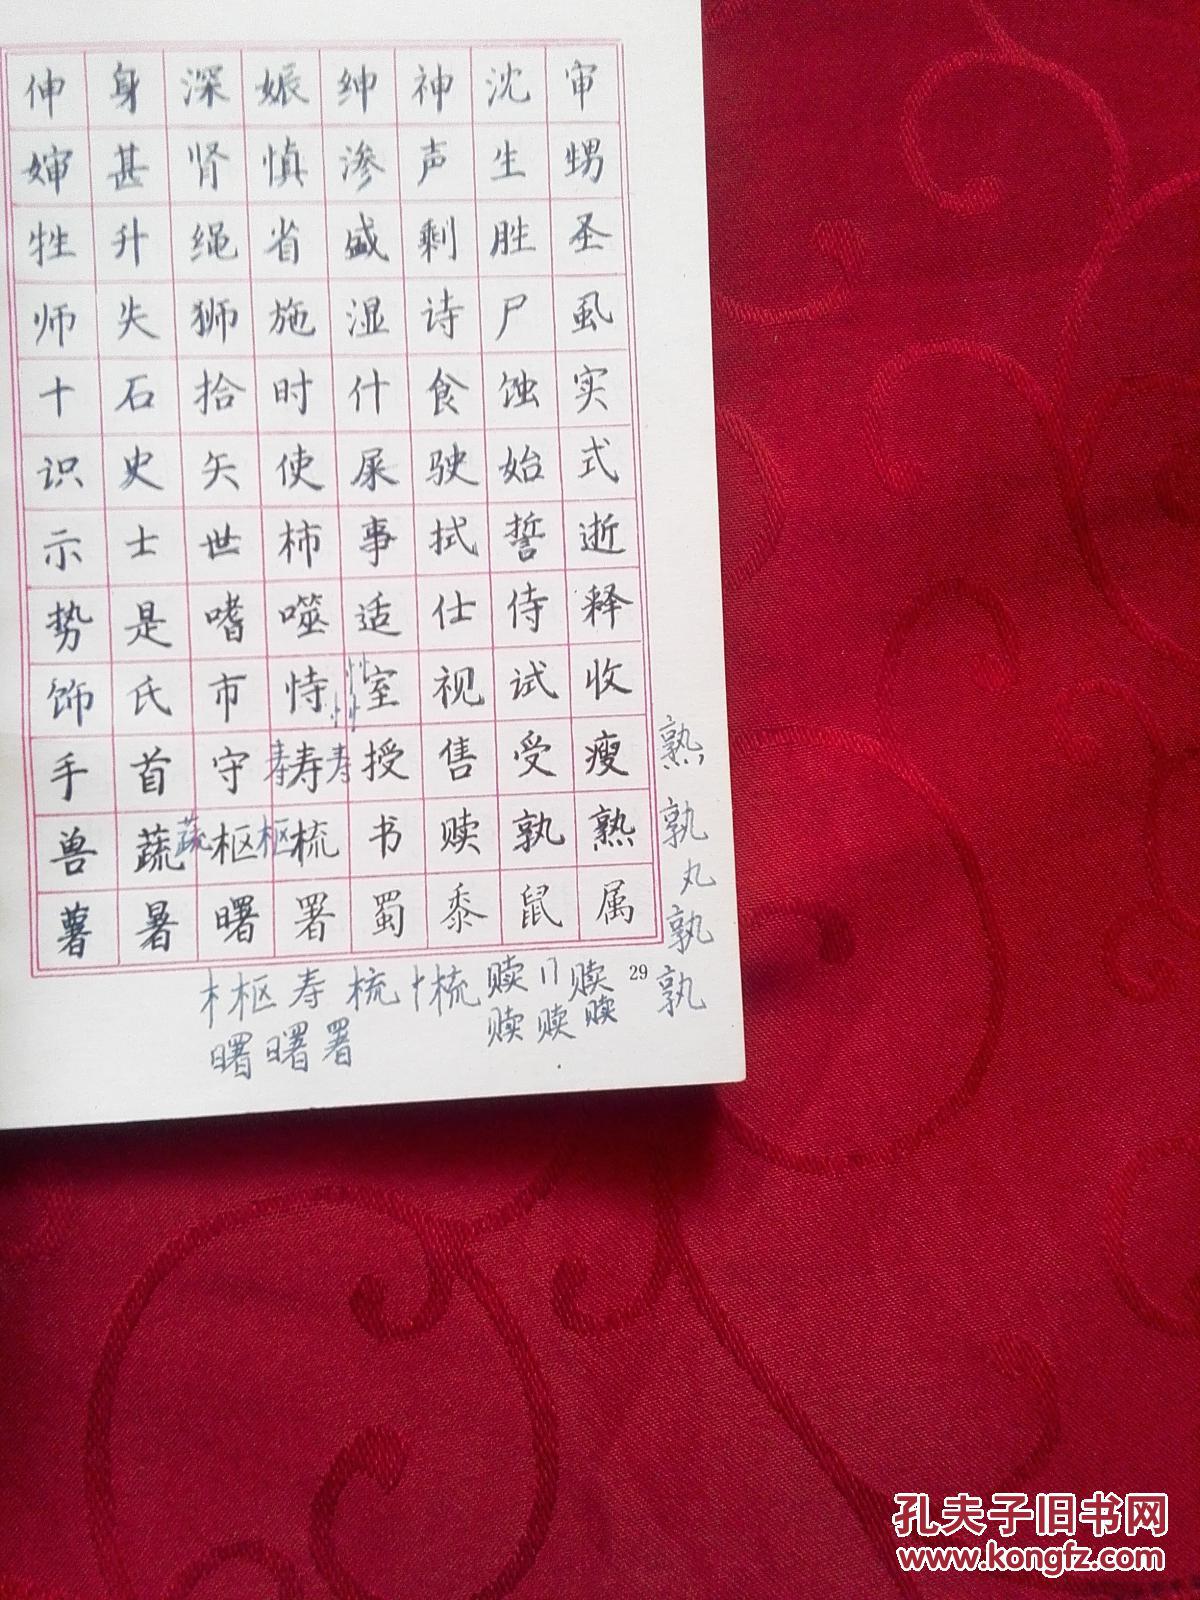 伸身深娠绅神沈审
婶甚肾慎渗声生甥
牲升绳省盛剩胜圣
师失狮施湿诗尸虱
十石拾时什食蚀实
识史矢使屎驶始式
示士世柿事拭誓逝
势是嗜噬适仕侍释
饰氏市恃室视试收
手首守寿寿寿授售受瘦
兽蔬蔬枢枢梳书赎孰熟
薯暑曙署蜀黍鼠属
熟
孰
丸
孰
孰
枢寿梳梳赎赎
曙曙署赎赎赎
29
孔夫子旧书网
www.kongfz.com